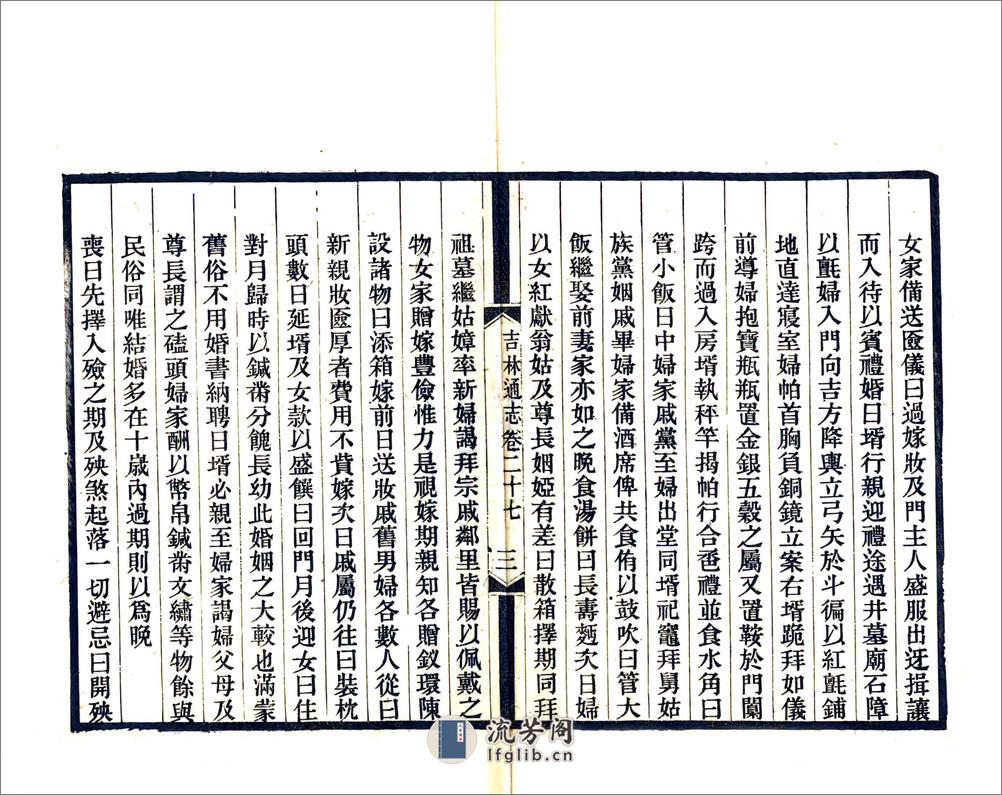 女家備送奩儀曰過嫁妝及門主人盛服出迓揖讓
而入待以賓禮婚日壻行親迎禮途遇井墓廟石障
以氈婦入門向吉方降輿立弓矢於斗徧以紅氈鋪
地直達寢室婦帕首胸負銅鏡立案右壻跪拜如儀
前導婦抱寶瓶瓶置金銀五穀之屬又置鞍於門闑
跨而過入房壻執秤竿揭帕行合巹禮並食水角曰
管小飯日中婦家戚黨至婦出堂同壻祀竈拜舅姑
族黨姻戚畢婦家備酒席俾共食侑以鼓吹曰管大
飯繼娶前妻家亦如之晚食湯餅曰長壽麪次日婦
以女紅獻翁姑及尊長姻婭有差曰散箱擇期同拜
吉林通志卷二十七
三
祖墓繼姑嫜率新婦謁拜宗戚鄰里皆賜以佩戴之
物女家贈嫁豐儉惟力是視嫁期親知各贈釵環陳
設諸物曰添箱嫁前日送妝戚舊男婦各數人從曰
新親妝奩厚者費用不貲嫁次日戚屬仍往曰裝枕
頭數日延壻及女款以盛饌曰回門月後迎女曰住
對月歸時以鍼黹分餽長幼此婚姻之大較也滿蒙
舊俗不用婚書納聘日壻必親至婦家謁婦父母及
尊長謂之磕頭婦家酬以幣帛鍼黹文繡等物餘與
民俗同唯結婚多在十歲內過期則以爲晚
喪日先擇入殮之期及殃煞起落一切避忌曰開殃
流芳阁
lfglib.cn